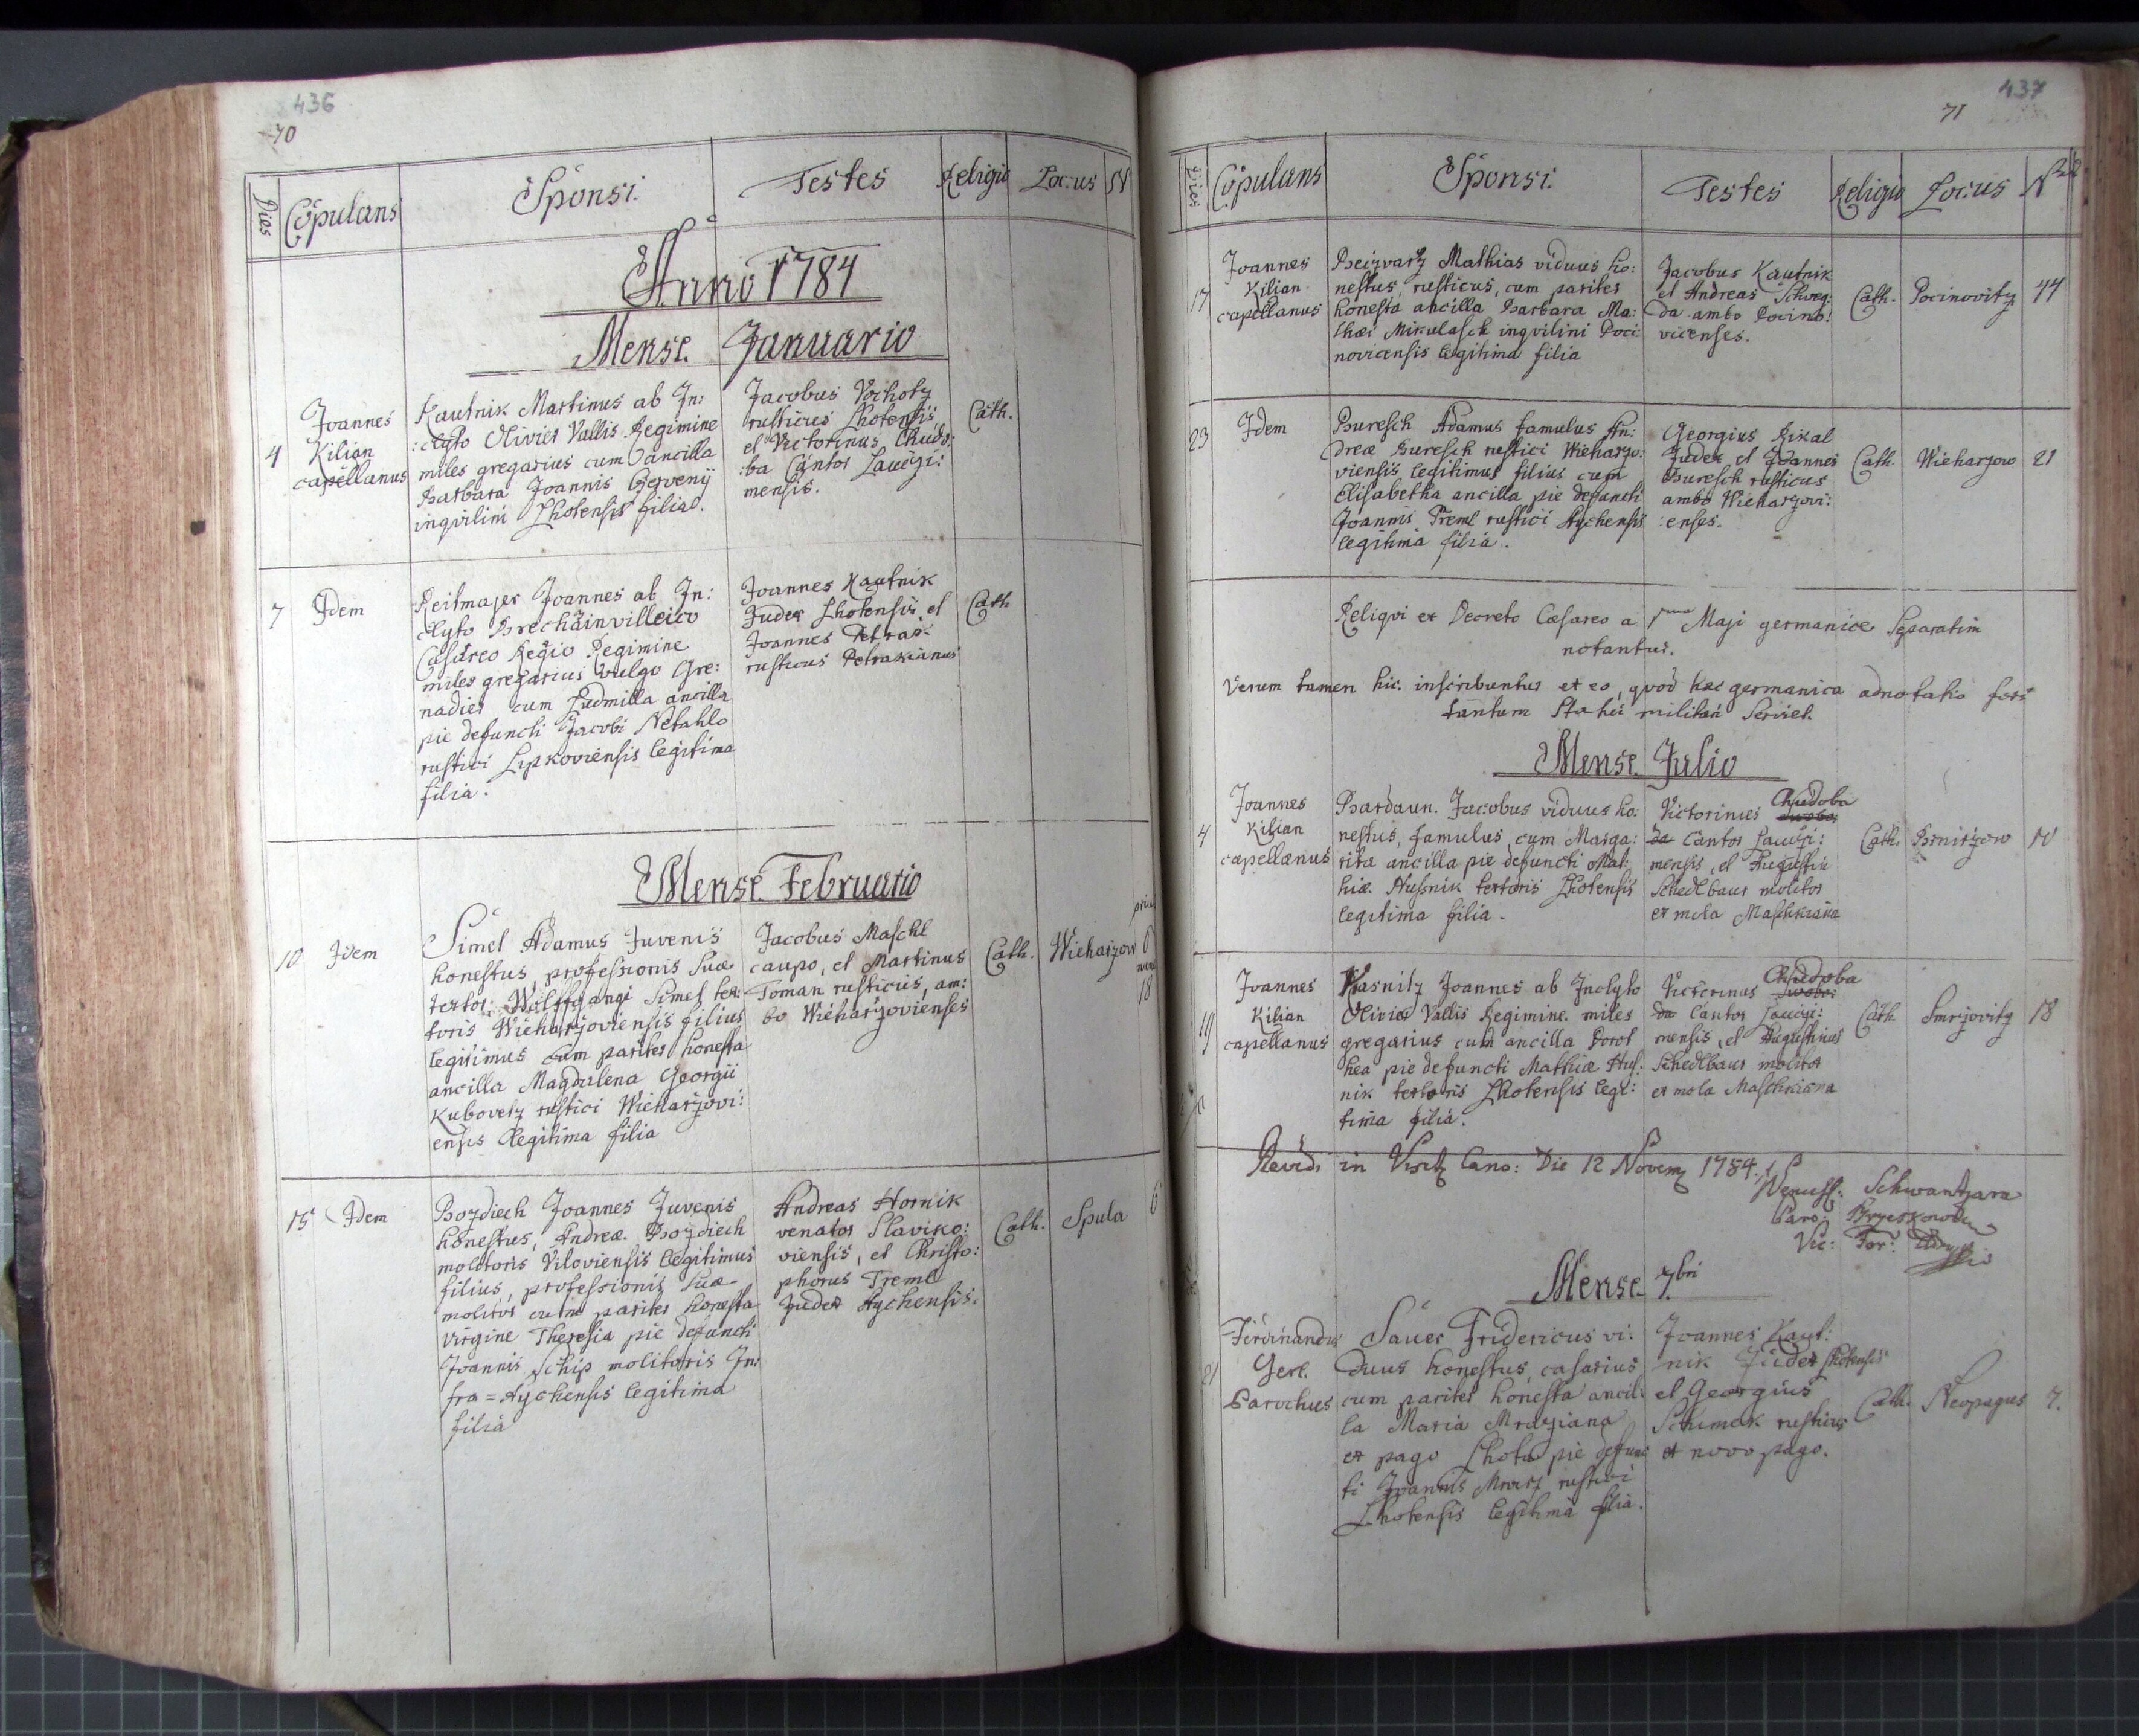 436
70
Dies Copulans Sponsi. Testes Religio Locus N
Anno 1784
Mense Januario
4
Joannes
Kilian
capellanus
Kautnik Martinus ab In:
:clyto Olivier Vallis Regimine
miles gregarius cum ancilla
Barbara Joannis Czerveny
inqvilini Lhotensis filia.
Jacobus Vochotz
rusticus Lhotensis,
et Victorinus Chudo:
:ba Cantor Lauczi:
mensis.
Cath.
7 Idem
Reitmajer Joannes ab In:
clyto Brechainvilleico
Casareo Regio Regimine
miles gregarius vulgo Gre:
nadier cum Ludmilla ancilla
pie defuncti Jacobi Netahlo
rustici Lipkoviensis legitima
filia.
Joannes Kautnik
Judex Lhotensis, et
Joannes Petrak
rusticus Petrakianus
Cath
Mense Februario
10 Idem
Simel Adamus Juvenis
honestus, professionis suæ
textor: Wolffgangi Simel tex:
toris Wieharzoviensis filius
legitimus cum pariter honesta
ancilla Magdalena Georgii
Kubovetz rustici Wieharzovi:
ensis legitima filia
Jacobus Maschl
caupo, et Martinus
Toman rusticus, am:
bo Wieharzovienses
Cath.
Wieharzow
6
18
15 Idem
Bozdiech Joannes Juvenis
honestus, Andreæ Bozdiech
molitoris Viloviensis legitimus
filius, professionis suæ
molitor cum pariter honesta
virgine Theresia pie defuncti
Joannis Schip molitoris In:
fra = Aychensis legitima
filia
Andreas Hornik
venator Slaviko:
viensis, et Christo:
phorus Treml
Judex Aychensis.
Cath.
Spula
6
437
71
Dies Copulans Sponsi. Testes Religio Locus N
17
Joannes
Kilian
capellanus
Beizvartz Mathias viduus ho:
nestus, rusticus, cum pariter
honesta ancilla Barbara Ma:
thæi Mikulasch inqvilini Poci:
novicensis legitima filia
Jacobus Kautnik
et Andreas Schweg:
da ambo Pocino:
vicenses.
Cath.
Pocinovitz
44
23 Idem
Buresch Adamus famulus An:
dreæ Buresch rustici Wieharzo:
viensis legitimus filius cum
Elisabetha ancilla pie defuncti
Joannis Treml rustici Aychensis
legitima filia.
Georgius Rikal
Judex et Joannes
Buresch rusticus
ambo Wieharzovi:
:enses.
Cath.
Wieharzow
21
Reliqvi ex Decreto Cæsareo a 1ma Maji germanice Separatim
notantur.
Verum tamen hic inscribuntur ex eo, qvod hæc germanica adnotatio fors
tantum Statui militari Serviet.
Mense Julio
4
Joannes
Kilian
capellanus
Bardaun. Jacobus viduus ho:
nestus, famulus cum Marga:
rita ancilla pie defuncti Mat:
hiæ Hussnik textoris Lhotensis
legitima filia.
Victorinus Chudoba
Cantor Lauczi:
mensis, et Augustin
Schedlbaur molitor
ex mola Maschkiana
Cath.
Brnirzow
10
19
Joannes
Kilian
capellanus
Krasnitz Joannes ab Inclyto
Olivier Vallis Regimine miles
gregarius cum ancilla Dorot
hea pie defuncti Mathiæ Hus:
nik textoris Lhotensis legi:
tima filia.
Victorinus Chudoba
Cantor Lauczi:
mensis, et Augustinus
Schedlbaur molitor
ex mola Maschkiana
Cath.
Smrzovitz
18
Revidi in Visit Cano: Die 12 Novem 1784.
Wencesl: Schwantzara
Paro:
Vic: For:
Mense 7bri
21
Ferdinandus
Gerl.
Parochus
Sauer Fridericus vi:
duus honestus, casarius
cum pariter honesta ancil:
la Maria Mraziana
ex pago Lhota pie defunc
ti Joannis Mraz rustici
Lhotensis legitima filia.
Joannes Kaut:
nik Judex Lhotensis
et Georgius
Schimek rusticus
ex novo pago.
Cath.
Neopagus
7.